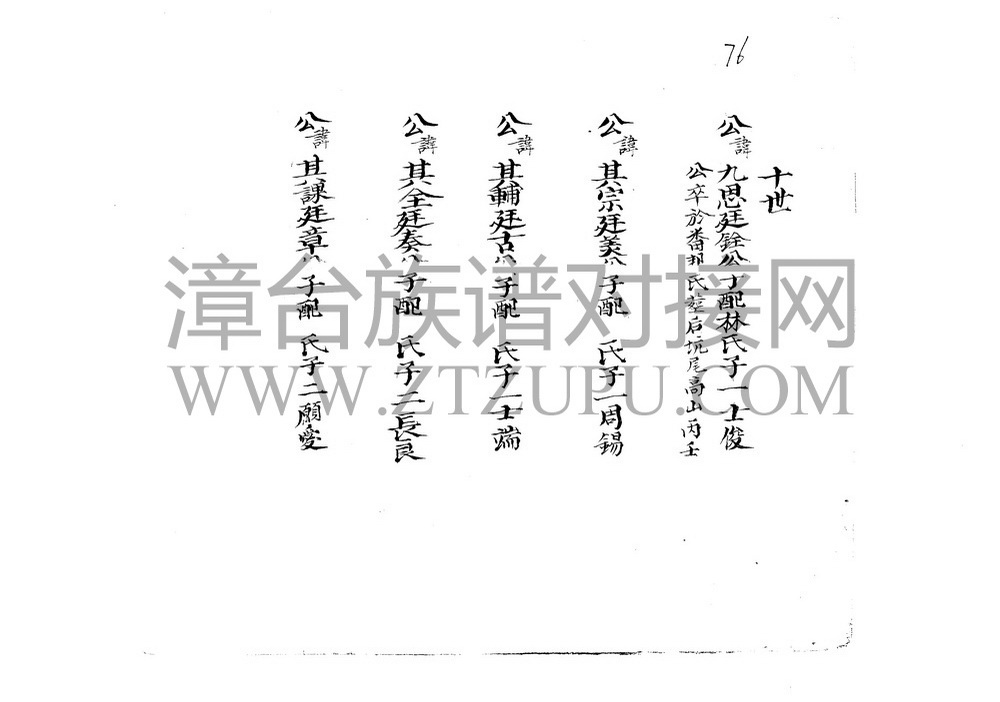 76
十世
公諱九思廷銓公子配林氏子一士俊
公卒於番邦氏塟后坑尾高山丙壬
公諱其宗廷美公子配 氏子一周錫
公諱其輔廷古公子配 氏子一士端
公諱其全廷奏公子配 氏子二長良
公諱其課廷章公子配 氏子二願愛
漳台族谱对接网
WWW.ZTZUPU.COM